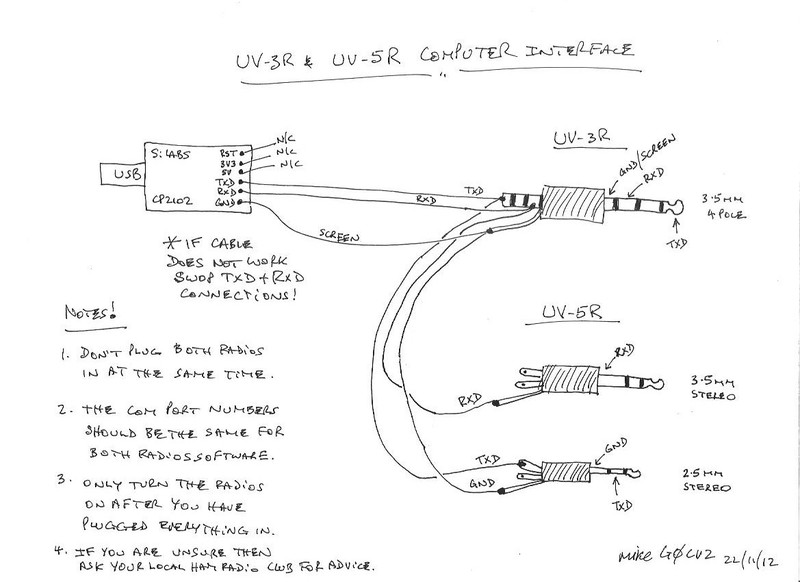 UV-3R & UV-5R COMPUTER INTERFACE
UV-3R
N/C
N/C
N/C
GND/SCREEN
RXD
SiLABS
RST
3V3
5V
TXD
RXD
GND
USB
CP2102
TXD
RXD
3.5MM
4 POLE
TXD
SCREEN
* IF CABLE
DOES NOT WORK
SWOP TXD + RXD
CONNECTIONS!
NOTES!
UV-5R
1. DON'T PLUG BOTH RADIOS
IN AT THE SAME TIME.
RXD
RXD
3.5MM
STEREO
2. THE COM PORT NUMBERS
SHOULD BE THE SAME FOR
BOTH RADIOS SOFTWARE.
TXD
GND
GND
TXD
2.5MM
STEREO
3. ONLY TURN THE RADIOS
ON AFTER YOU HAVE
PLUGGED EVERYTHING IN.
4. IF YOU ARE UNSURE THEN
ASK YOUR LOCAL HAM RADIO CLUB FOR ADVICE.
Mike 22/11/12